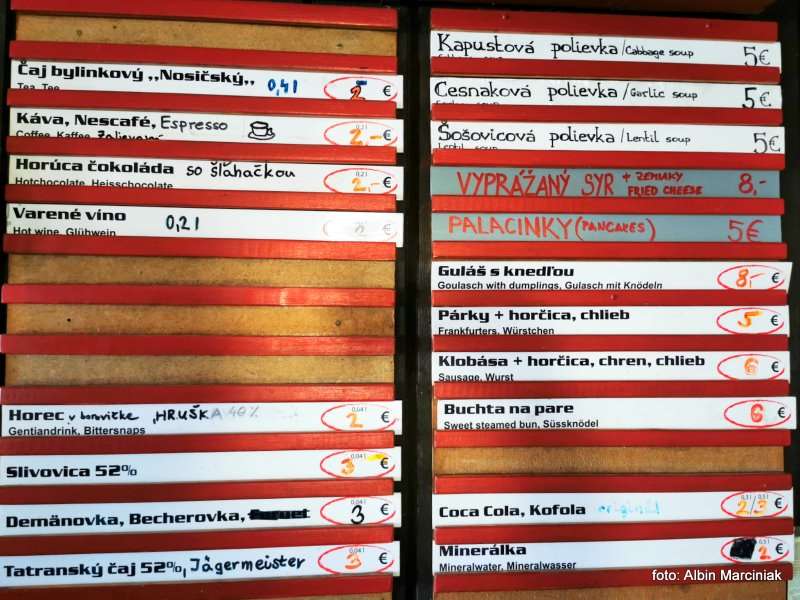 Čaj bylinkový „Nosičský„ 0,4l 2 €
Tea, Tee
Káva, Nescafé, Espresso 0,2 l 2,- €
Coffee, Kaffee, Zalievaná
Horúca čokoláda so šľahačkou 0,2 l 2,- €
Hotchocolate, Heisschocolate
Varené víno 0,2l €
Hot wine, Glühwein
Horec v borovičke, HRUŠKA 40% 0,04 l 2 €
Gentiandrink, Bittersnaps
Slivovica 52% 0,04 l 3 €
Demänovka, Becherovka, 0,04 l 3 €
Tatranský čaj 52%, Jägermeister 0,04 l 3 €
Kapustová polievka /Cabbage soup 5€
Cesnaková polievka /Garlic soup 5€
Šošovicová polievka /Lentil soup 5€
Lentil soup
VYPRÁŽANÝ SYR + ZEMIAKY 8,-
FRIED CHEESE
PALACINKY (PANCAKES) 5€
Guláš s knedľou 8,- €
Goulasch with dumplings, Gulasch mit Knödeln
Párky + horčica, chlieb 5 €
Frankfurters, Würstchen
Klobása + horčica, chren, chlieb 6 €
Sausage, Wurst
Buchta na pare 6 €
Sweet steamed bun, Süssknödel
Coca Cola, Kofola originál 0,3 l / 0,5 l 2/3 €
Minerálka 0,5 l 2 €
Mineralwater, Mineralwasser
foto: Albin Marciniak